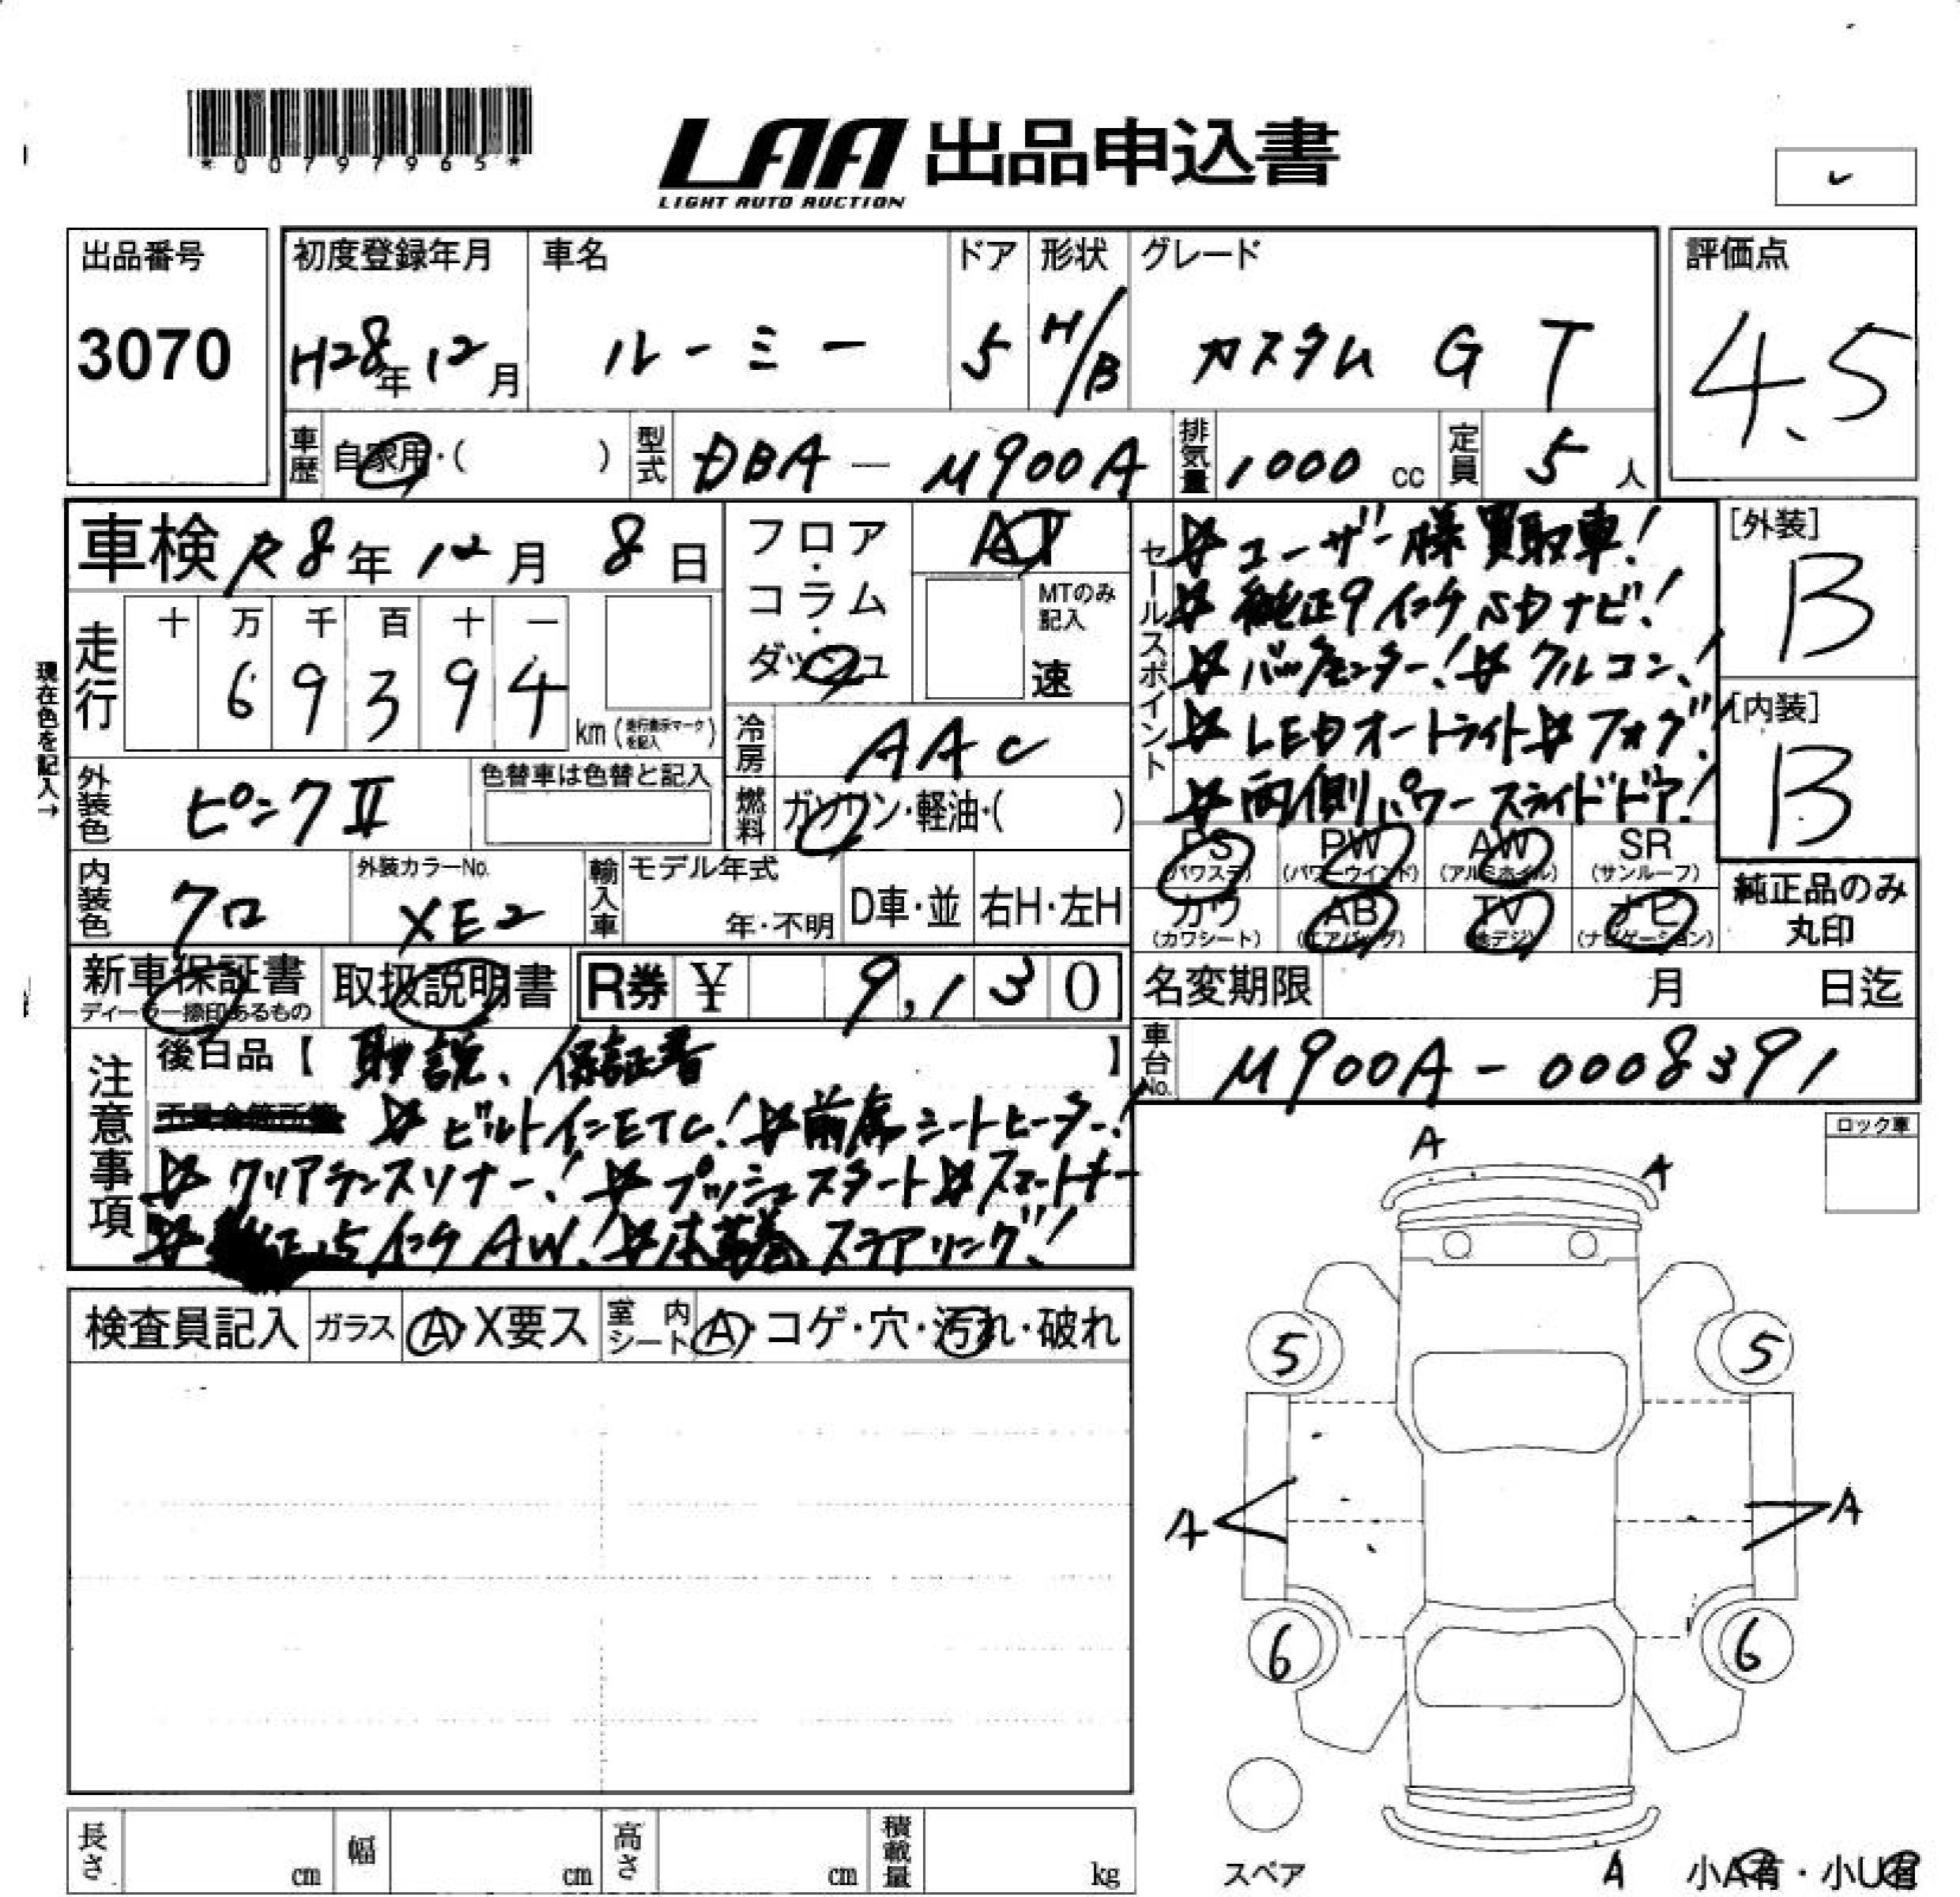 *0079796​5*
LAA 出品申込書
LIGHT AUTO AUCTION
出品番号
3070
初度登録年月 車名 ドア 形状 グレード
H28年 12月 ルーミー 5 H/B カスタム G T
評価点
4.5
車歴 自家用・( ) 型式 DBA - M900A 排気量 1000 cc 定員 5 人
車検 R8年 12月 8日
フロア・コラム・ダッシュ
AT
MTのみ記入
速
セールスポイント
#ユーザー様買取車!
#純正9インチSDナビ!
#バックセンター! #クルコン!
#LEDオートライト #フォグ!
#両側パワースライドドア!
[外装]
B
[内装]
B
現在色を記入→
走行 十 万 千 百 十 一
6 9 3 9 4
km(走行表示マークを記入)
冷房 AAC
外装色 ピンクII 色替車は色替と記入
燃料 ガソリン・軽油・( )
PS(パワステ) PW(パワーウインド) AW(アルミホイル) SR(サンルーフ)
カワ(カワシート) AB(エアバッグ) TV(地デジ) ナビ(ナビゲーション)
純正品のみ丸印
内装色 クロ 外装カラーNo. XE2 輸入車 モデル年式 年・不明 D車・並 右H・左H
新車保証書
ディーラー捺印あるもの
取扱説明書 R券 ¥ 9,130
名変期限 月 日迄
車台No. M900A-0008391
注意事項
後日品【 取説、保証書 】
#ビルトインETC! #前席シートヒーター!
#クリアランスソナー! #プッシュスタート #スマートキー
#純正15インチAW! #本革巻ステアリング!
ロック車
検査員記入 ガラス A・X要ス 室内シート A・コゲ・穴・汚れ・破れ
A
A
5 5
A A
6 6
スペア
A
小A有・小U有
長さ cm 幅 cm 高さ cm 積載量 kg